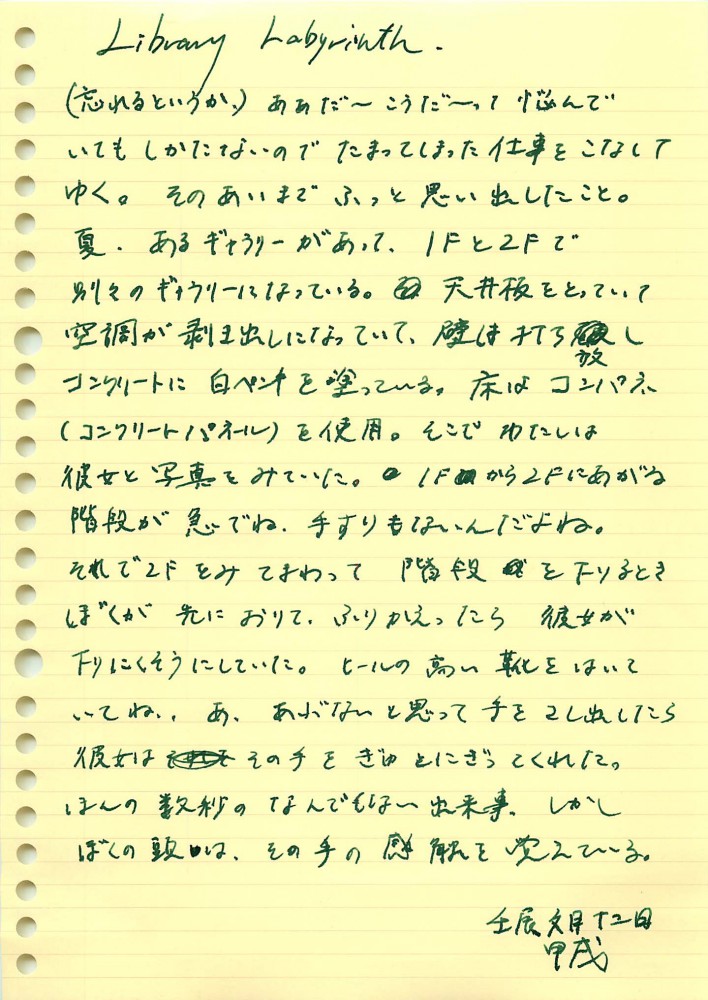 Library Labyrinth.
(忘れるというか、) ああだ〜こうだ〜って悩んで
いてもしかたないのでたまってしまった仕事をこなして
ゆく。そのあいまでふっと思い出したこと。
夏、あるギャラリーがあって、1Fと2Fで
別々のギャラリーになっている。天井板をとっていて
空調が剥き出しになっていて、壁は打ち放し
コンクリートに白ペンキを塗っている。床はコンパネ
(コンクリートパネール)を使用。そこでわたしは
彼女と写真をみていた。1Fから2Fにあがる
階段が急でね、手すりもないんだよね。
それで2Fをみてまわって階段を下りるとき
ぼくが先におりて、ふりかえったら彼女が
下りにくそうにしていた。ヒールの高い靴をはいて
いてね、あ、あぶないと思って手をさし出したら
彼女はその手をぎゅとにぎってくれた。
ほんの数秒のなんでもない出来事、しかし
ぼくの頭は、その手の感触を覚えている。
壬辰文月十二日
甲戌